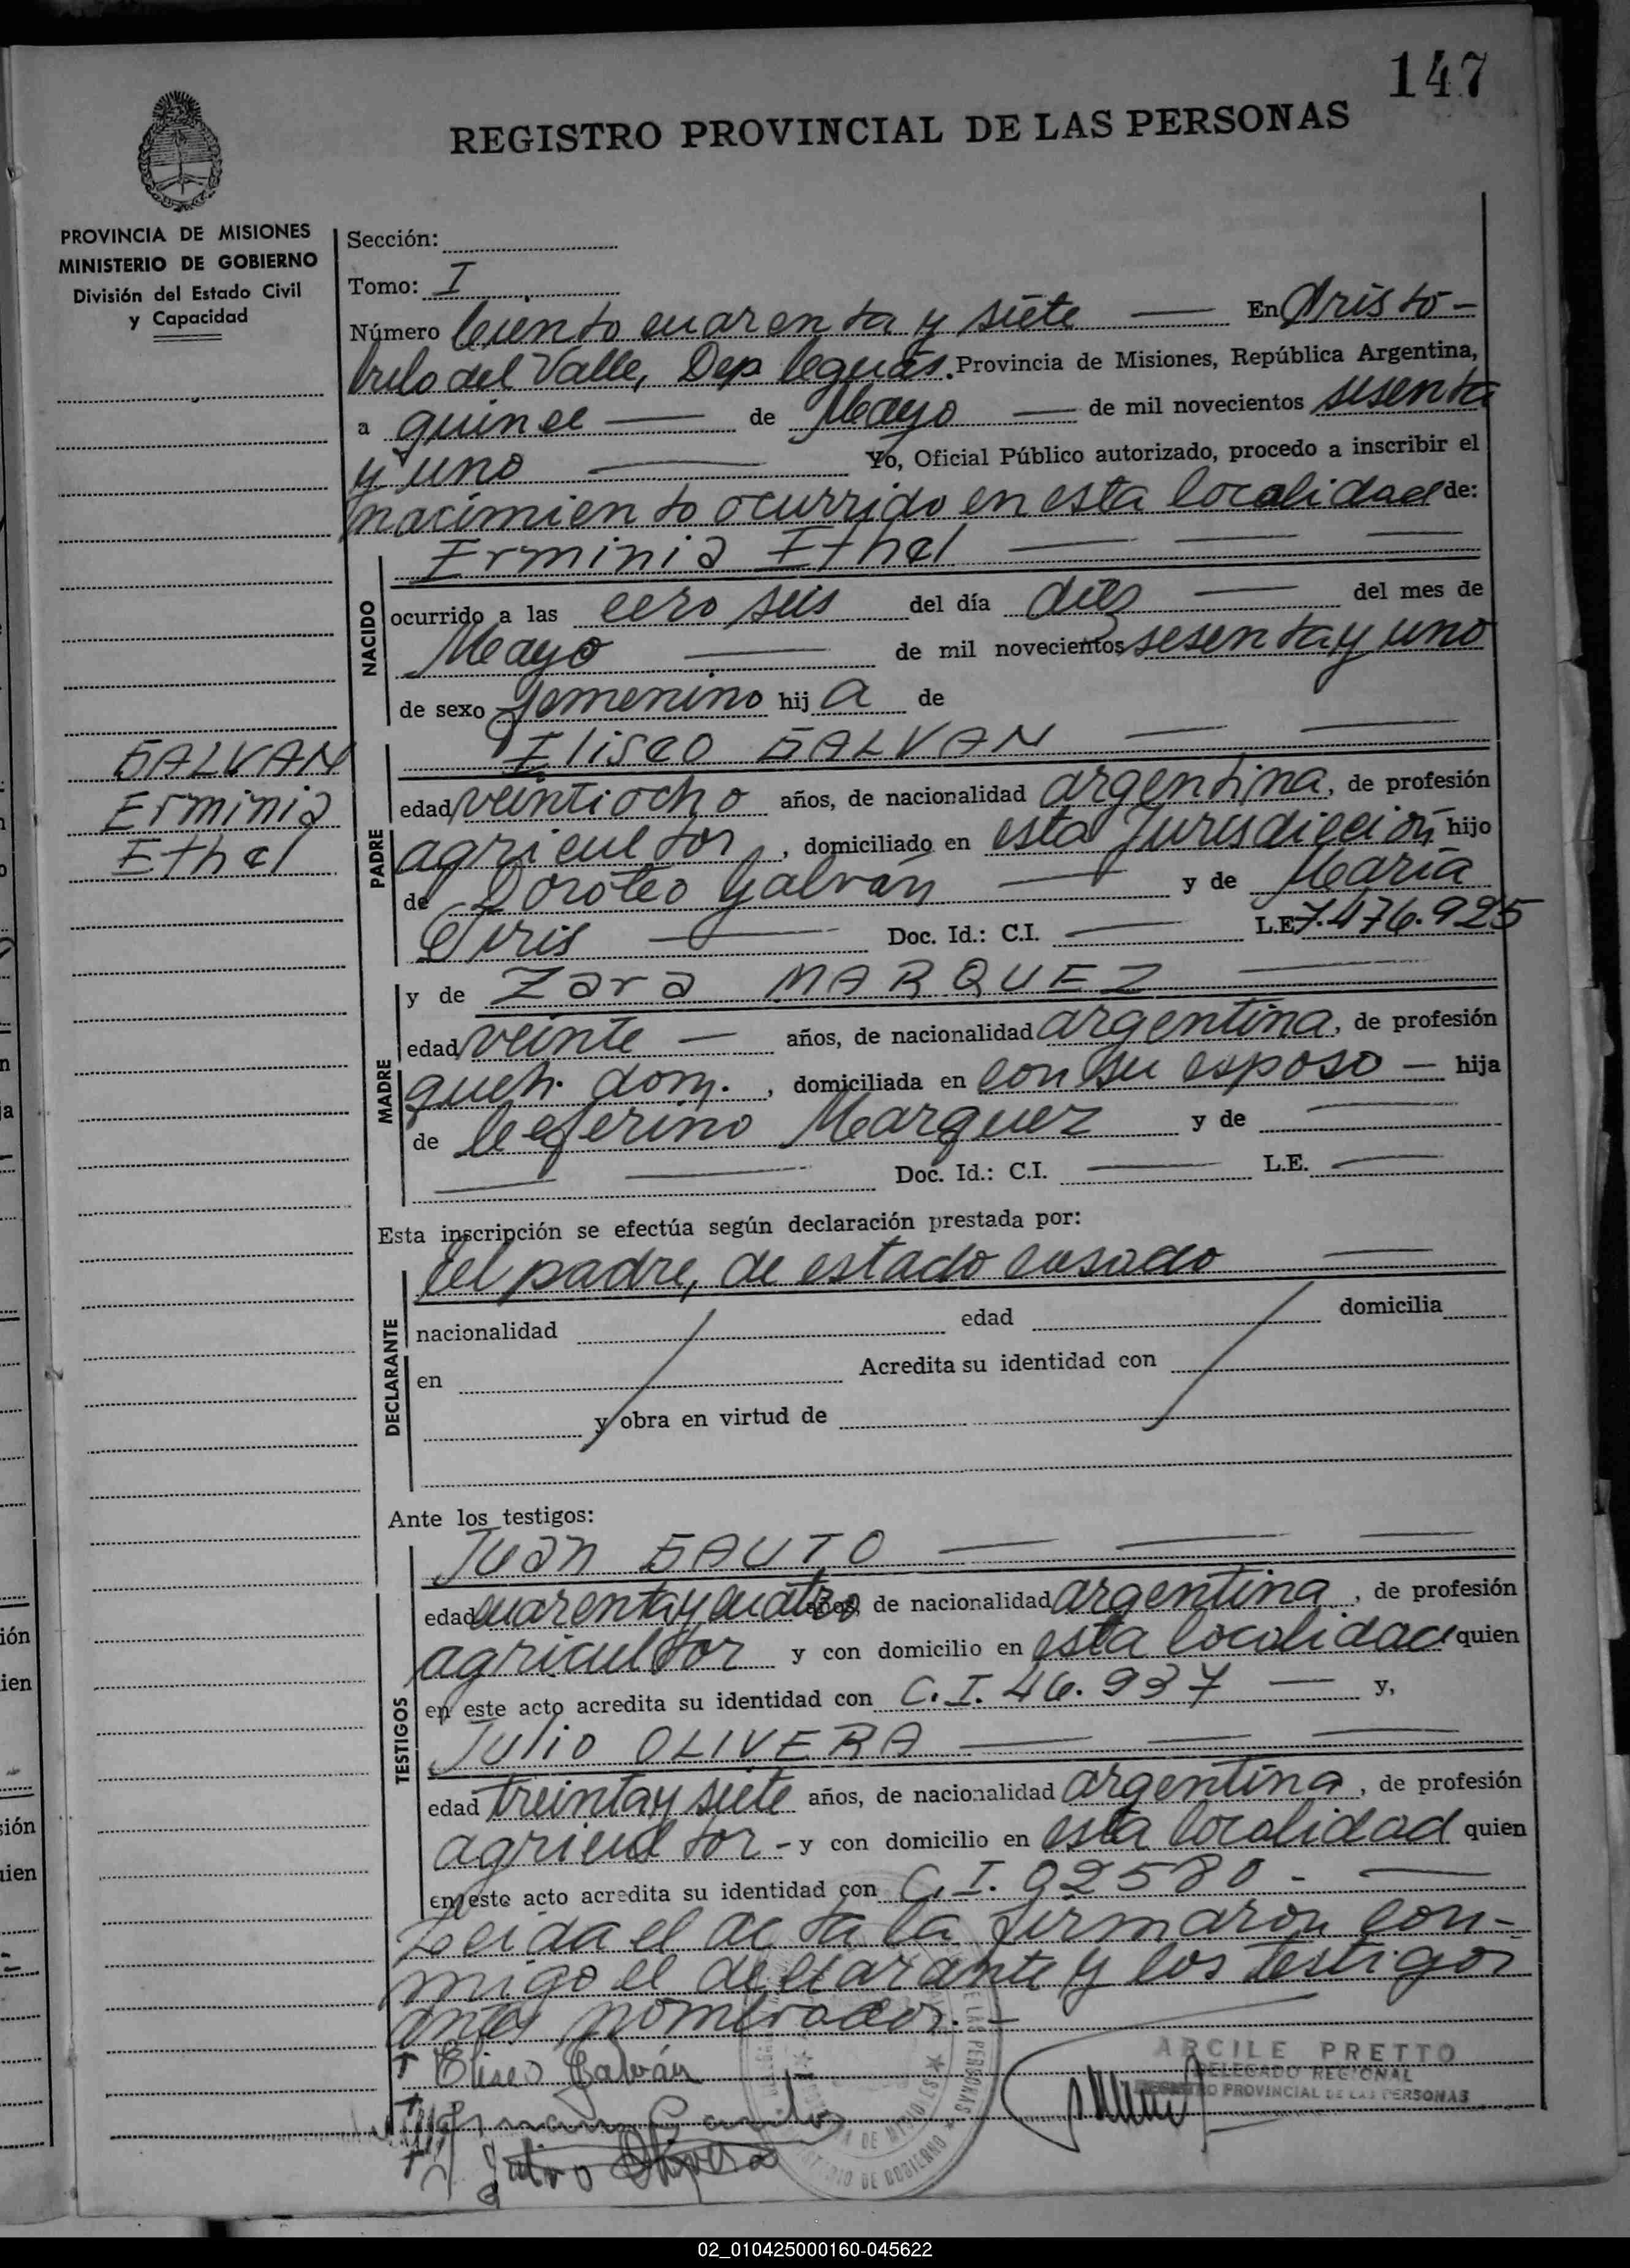 147
REGISTRO PROVINCIAL DE LAS PERSONAS
PROVINCIA DE MISIONES
MINISTERIO DE GOBIERNO
División del Estado Civil
y Capacidad
Sección:
Tomo: I
Número Ciento cuarenta y siete — En Aristó-
bulo del Valle, Dep Ceguás. Provincia de Misiones, República Argentina,
a quince — de Mayo — de mil novecientos sesenta
y uno — Yo, Oficial Público autorizado, procedo a inscribir el
nacimiento ocurrido en esta localidad de:
NACIDO
Erminia Ethel — — —
ocurrido a las cero seis del día diez — del mes de
Mayo — de mil novecientos sesenta y uno
de sexo femenino hij a de
GALVAN
Erminia
Ethel
PADRE
Eliseo GALVAN — —
edad veintiocho años, de nacionalidad argentina, de profesión
agricultor, domiciliado en esta Jurisdicción hijo
de Doroteo Galván — y de María
— Doc. Id.: C.I. — L.E. 7.476.925
MADRE
y de Zara MARQUEZ —
edad veinte — años, de nacionalidad argentina, de profesión
queh. dom., domiciliada en con su esposo — hija
de Ceferino Marquez y de —
— — Doc. Id.: C.I. — L.E. —
Esta inscripción se efectúa según declaración prestada por:
DECLARANTE
el padre, de estado casado —
nacionalidad edad domicilia
en Acredita su identidad con
y obra en virtud de
Ante los testigos:
TESTIGOS
Juan GAUTO — — —
edad cuarenta y cuatro años, de nacionalidad argentina, de profesión
agricultor y con domicilio en esta localidad quien
en este acto acredita su identidad con C.I. 46.937 — y,
Julio OLIVERA — — —
edad treinta y siete años, de nacionalidad argentina, de profesión
agricultor - y con domicilio en esta localidad quien
en este acto acredita su identidad con C.I. 92580 - —
Leida el acta la firmaron con-
migo el declarante y los testigos
antes nombrados. -
Eliseo Galván
ARCILE PRETTO
DELEGADO REGIONAL
REGISTRO PROVINCIAL DE LAS PERSONAS
Julio Olivera
02_010425000160-045622